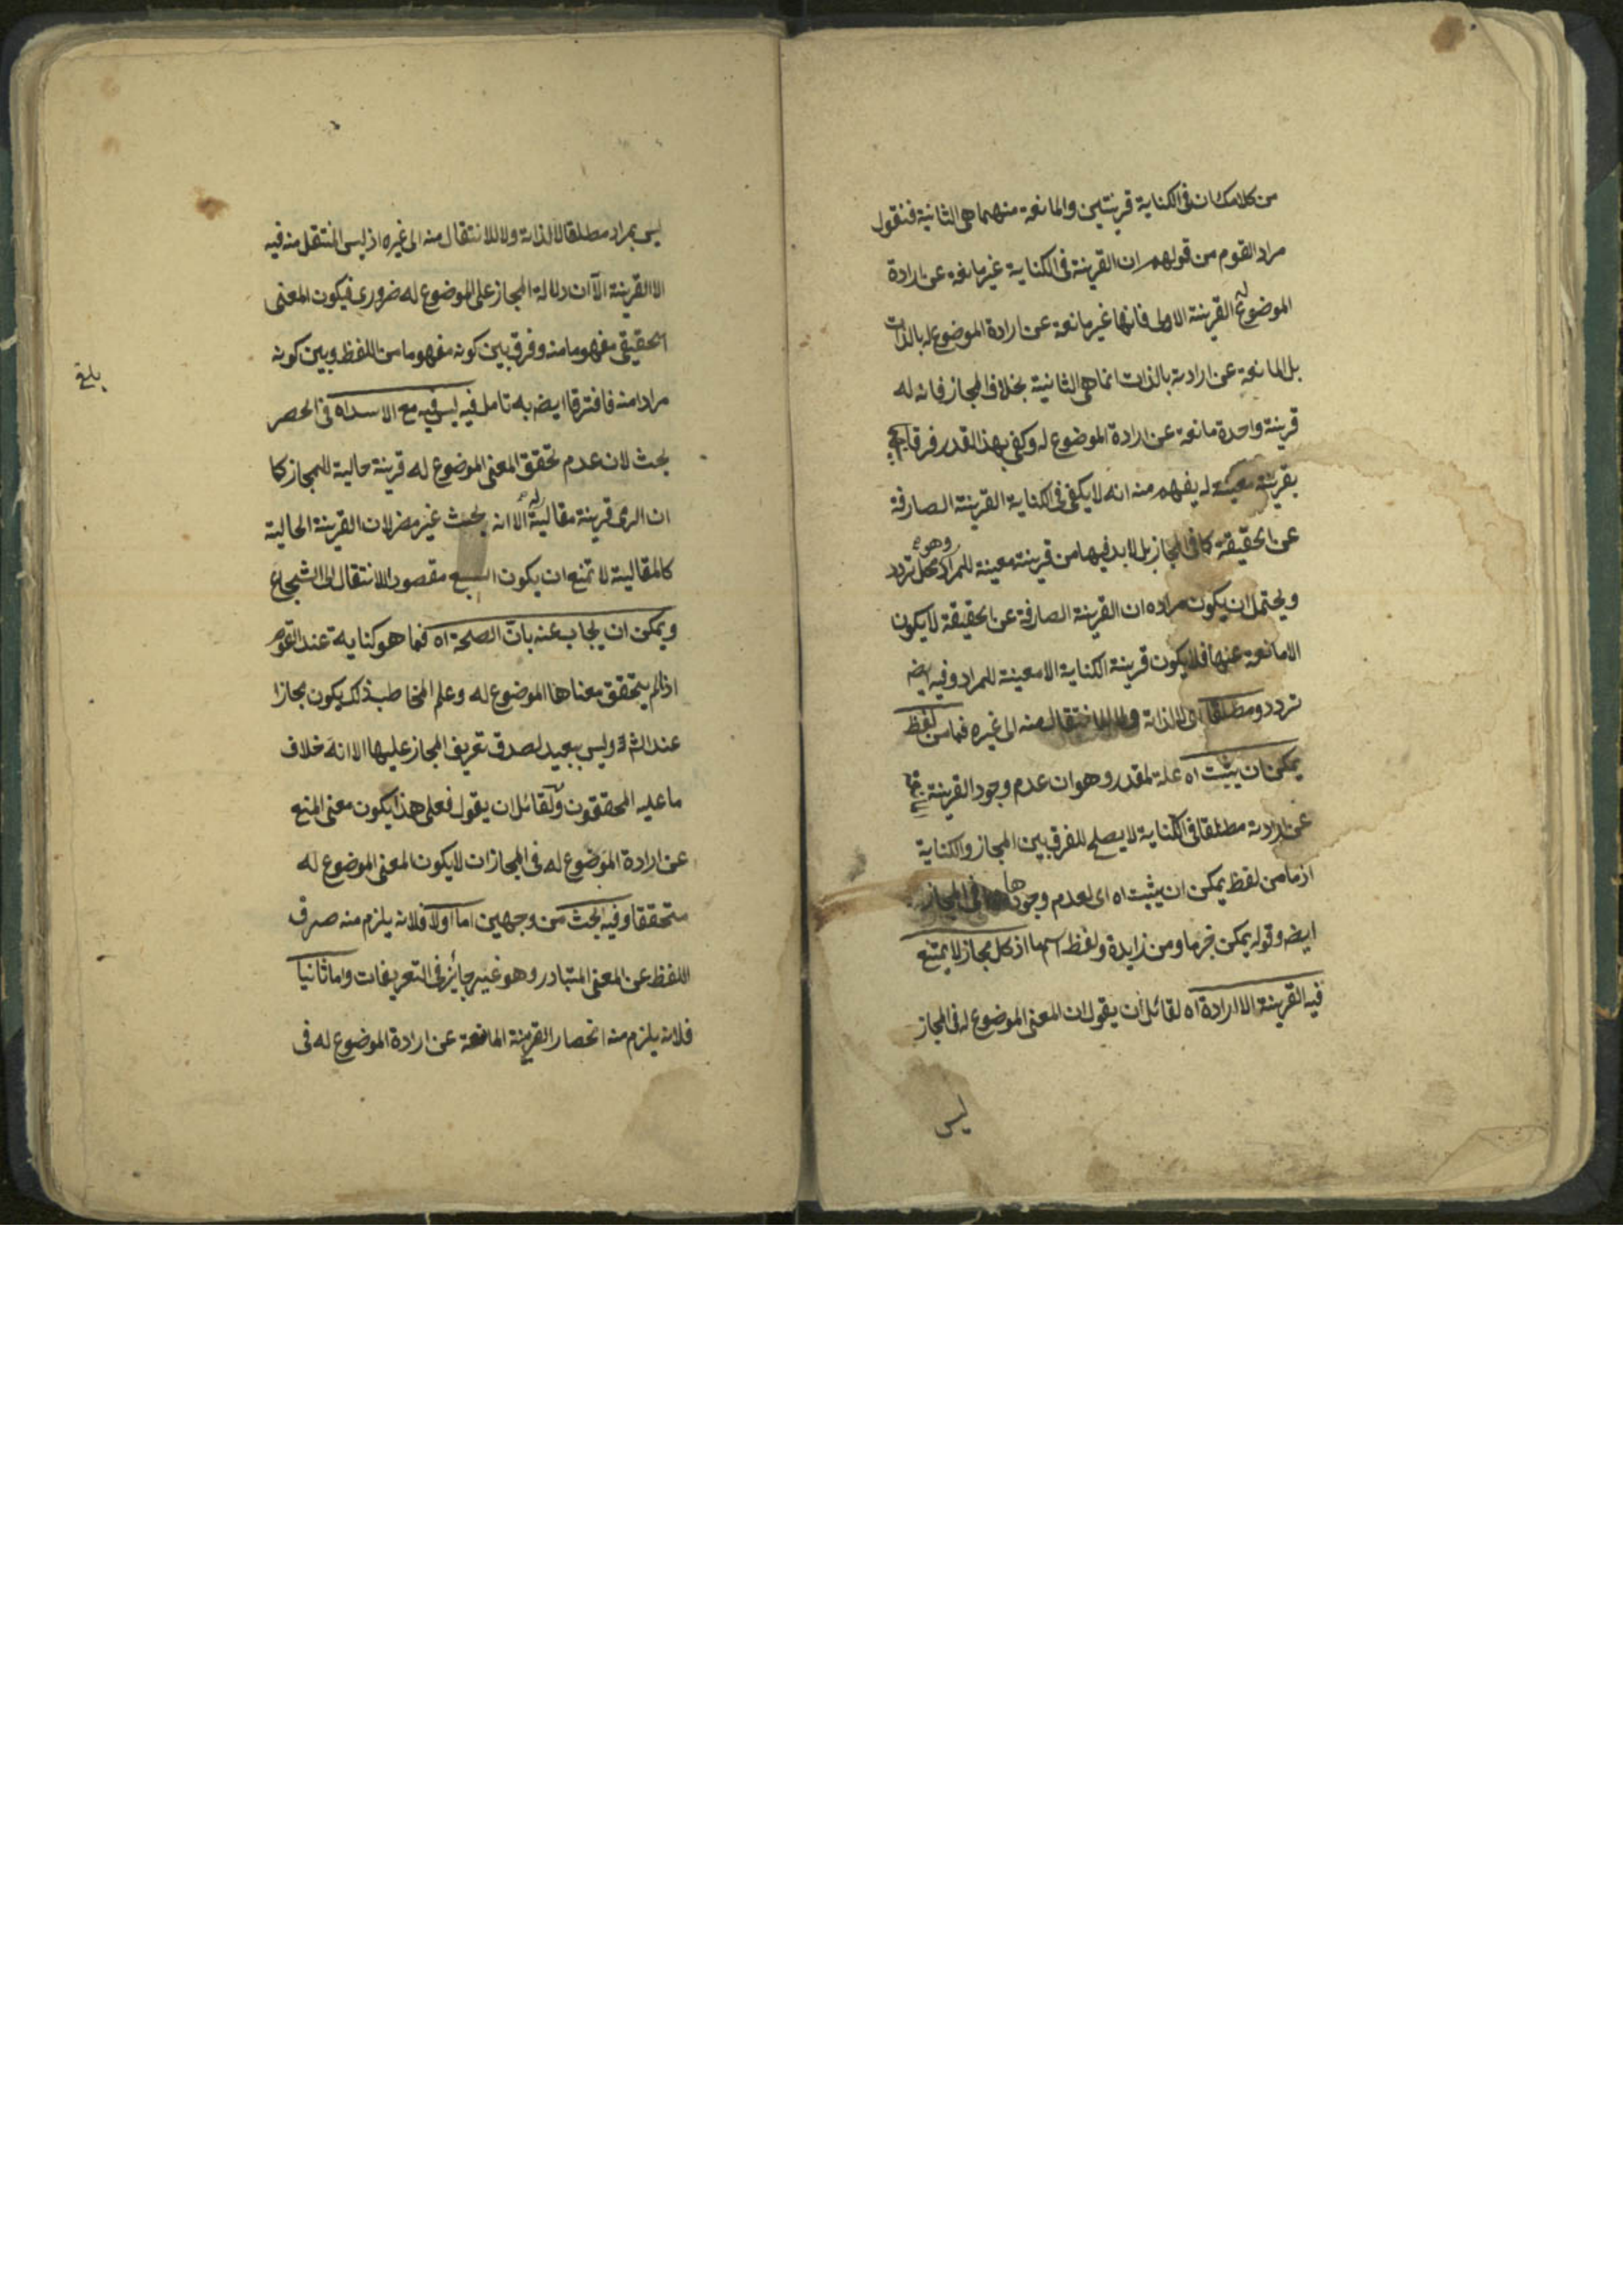 من كلامك ان فى الكناية قرينتين والمانعة منهما هى الثانية فنقول
مراد القوم من قولهم ان القرينة فى الكناية غير مانعة عن ارادة
الموضوع له القرينة الاولى فانها غير مانعة عن ارادة الموضوع له بالذات
بل المانعة عن ارادته بالذات انما هى الثانية بخلاف المجاز فانه له
قرينة واحدة مانعة عن ارادة الموضوع له وكفى بهذا القدر فرقا
بقرينة معينة له يفهم منه انه لا يكفى فى الكناية القرينة الصارفة
عن الحقيقة كما فى المجاز بل لابد فيها من قرينة معينة للمراد وهو محل تردد
ويحتمل ان يكون مراده ان القرينة الصارفة عن الحقيقة لا يكون
الا مانعة عنها فلا يكون قرينة الكناية الا معينة للمراد وفيه ايضه
تردد ومطلقا اى لا لذاته ولا للانتقال منه الى غيره فما من لفظ
يمكن ان يثبت اه علة لمقدر وهو ان عدم وجود القرينة
عن ارادته مطلقا فى الكناية لا يصلح للفرق بين المجاز والكناية
اذ ما من لفظ يمكن ان يثبت اه اى لعدم وجودها فى المجاز
ايضه وقوله يمكن خبر ما ومن زايدة ولفظ اسمها اذ كل مجاز لا يمتنع
فيه القرينة الا ارادة اه لقائل ان يقول ان المعنى الموضوع له فى المجاز
ليس
ليس بمراد مطلقا لا لذاته ولا للانتقال منه الى غيره اذ ليس المنتقل منه فيه
الا القرينة الا ان دلالة المجاز على الموضوع له ضرورى فيكون المعنى
الحقيقى مفهوما منه وفرق بين كونه مفهوما من اللفظ وبين كونه
مرادا منه فافترقا ايضه به تامل فيه ليس فيه مع الاسد اه فى الحصر
بحث لان عدم تحقق المعنى الموضوع له قرينة حالية للمجاز كما
ان الرمى قرينة مقالية له الا انه بحث غير مضر لان القرينة الحالية
كالمقالية لا تمنع ان يكون السبع مقصود الانتقال الى الشجاع
ويمكن ان يجاب عنه بان الصحة اه فما هو كناية عند القوم
اذا لم يتحقق معناها الموضوع له وعلم المخاطب ذلك يكون مجازا
عند الشه وليس ببعيد لصدق تعريف المجاز عليها الا انه خلاف
ما عليه المحققون ولقائل ان يقول فعلى هذا يكون معنى المنع
عن ارادة الموضوع له فى المجازات لا يكون المعنى الموضوع له
متحققا وفيه البحث من وجهين اما اولا فلانه يلزم منه صرف
اللفظ عن المعنى المتبادر وهو غير جائز فى التعريفات واما ثانيا
فلانه يلزم منه انحصار القرينة المانعة عن ارادة الموضوع له فى
بلغ